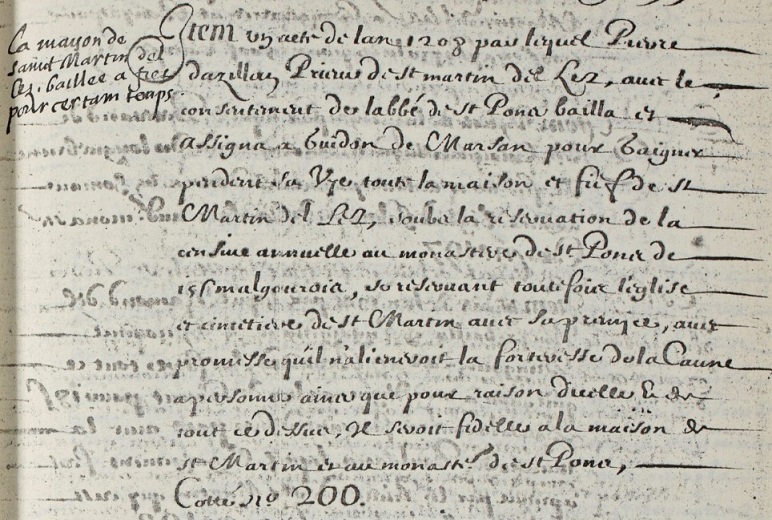 La maison de
Sainct Martin del
Lez. baillee a fiet
pour certain temps.
Item un acte de lan 1208 par lequel Pierre
dazillan Prieur de st martin del Lez, avec le
consentement de labbé de st Pons bailla et
assigna a Guidon de Marsan pour Gaigner
pendent sa Vye toute la maison et fief de st
Martin del Lez, soubz la reservation de la
censive annuelle au monastere de st Pons de
15 s malgourois, se reservant toutesfois leglise
et cimetiere de st Martin avec sa premice, avec
promesse quil nalieneroit la forteresse de la Caune
a persone ains que pour raison dicelle & de
tout ce dessus, Il seroit fidelle a la maison de
st Martin et au monastr de st Pons,
Cotté no 200.